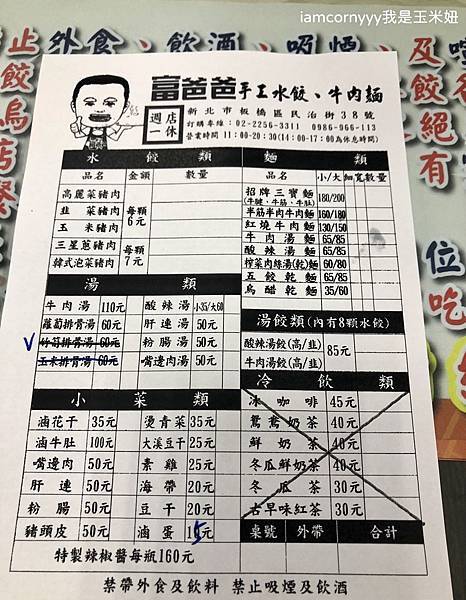 iamcornyyy我是玉米妞
止外食、飲酒、吸煙、及嚼
富爸爸手工水餃、牛肉麵
週一店休
新北市板橋區民治街38號
訂購專線：02-2256-3311 0986-966-113
營業時間11:00-20:30(14:00-17:00為休息時間)
水餃類
品名 金額 數量
高麗菜豬肉
韭菜豬肉
玉米豬肉
每顆6元
三星蔥豬肉
韓式泡菜豬肉
每顆7元
麵類
品名 小/大 細寬 數量
招牌三寶麵(牛腱、牛筋、牛肚) 180/200
半筋半肉牛肉麵 160/180
紅燒牛肉麵 130/150
牛肉湯麵 65/85
酸辣湯麵 65/85
榨菜肉絲湯(乾)麵 60/80
五餃乾麵 65/80
烏醋乾麵 35/60
湯類
牛肉湯 110元 酸辣湯 小35/大60
蘿蔔排骨湯 60元 肝連湯 50元
V 竹筍排骨湯 60元 粉腸湯 50元
玉米排骨湯 60元 嘴邊肉湯 50元
湯餃類(內有8顆水餃)
酸辣湯餃(高/韭)
牛肉湯餃(高/韭)
85元
小菜類
滷花干 35元 燙青菜 35元
滷牛肚 100元 大溪豆干 25元
嘴邊肉 50元 素雞 25元
肝連 50元 海帶 20元
粉腸 50元 豆干 20元
豬頭皮 50元 滷蛋 15元
特製辣椒醬每瓶160元
冷飲類
冰咖啡 45元
鴛鴦奶茶 40元
鮮奶茶 40元
冬瓜鮮奶茶 40元
冬瓜茶 30元
古早味紅茶 30元
桌號 外帶 合計
禁帶外食及飲料 禁止吸煙及飲酒
餃
烏
谷
絕
有
位
吃